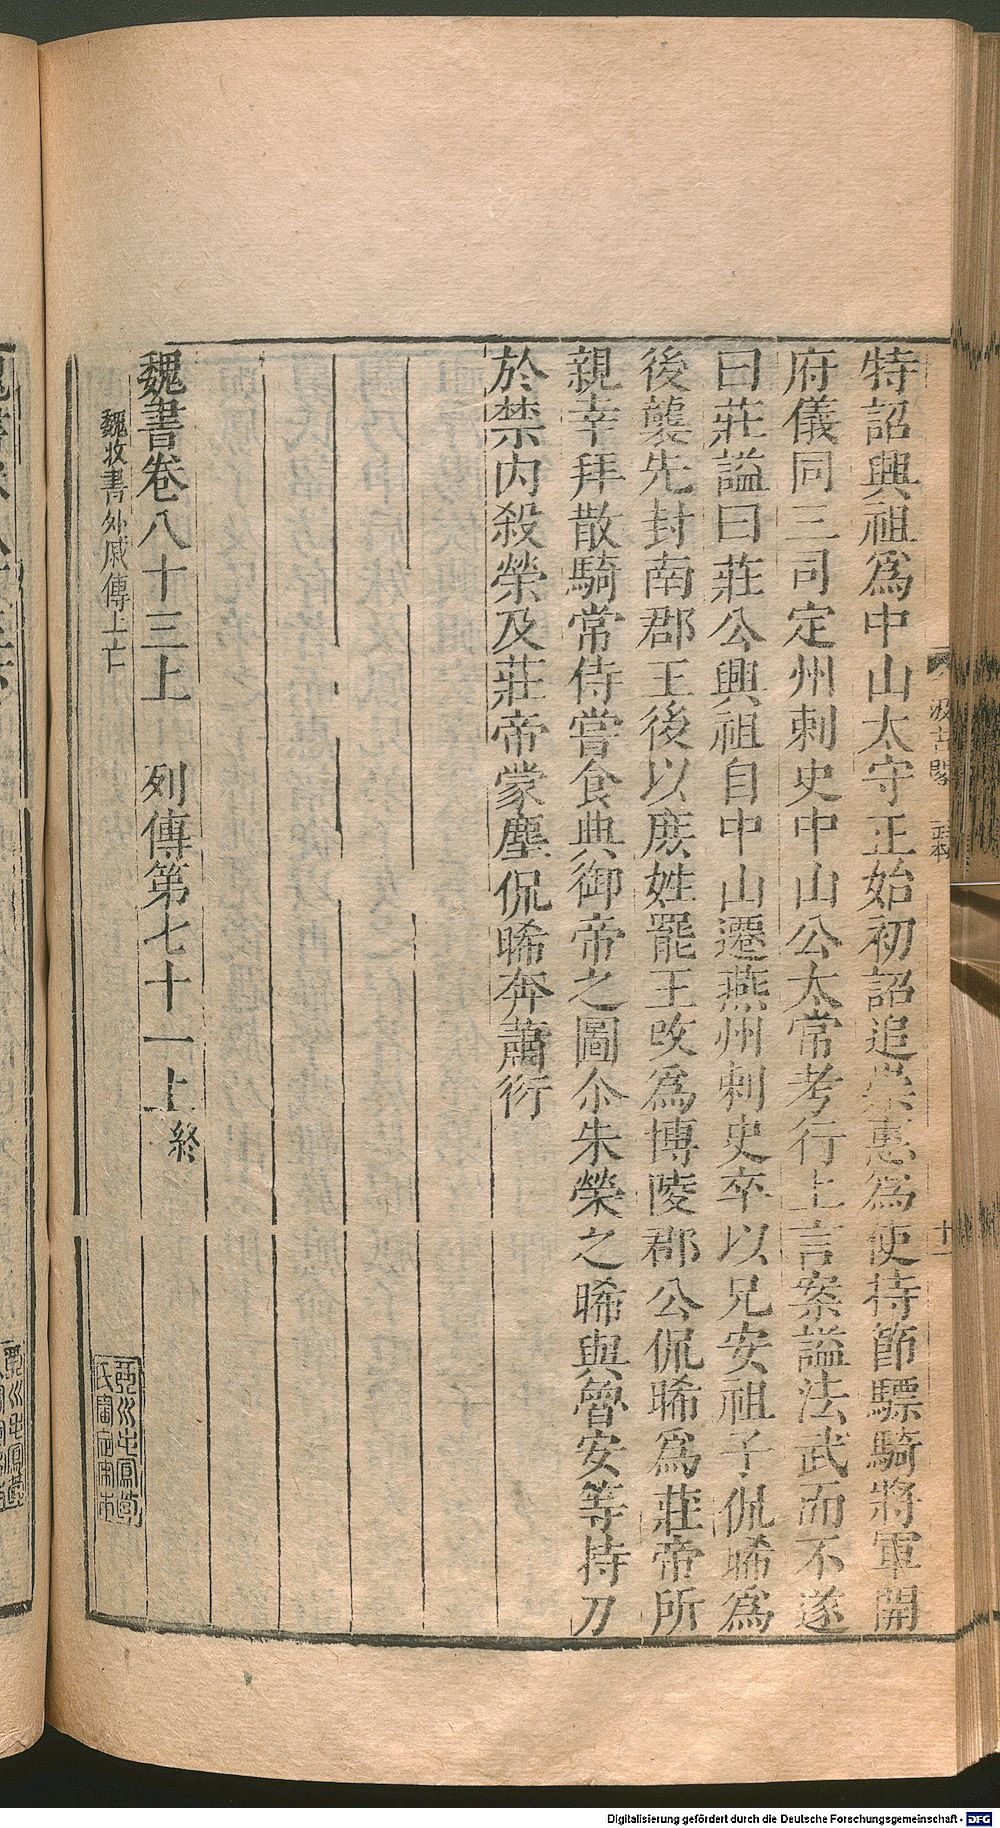 特詔興祖爲中山太守正始初詔追崇惠爲使持節驃騎將軍開
府儀同三司定州刺史中山公太常考行上言案謚法武而不遂
曰莊謚曰莊公興祖自中山遷燕州刺史卒以兄安祖子侃晞爲
後襲先封南郡王後以庶姓罷王改爲博陵郡公侃晞爲莊帝所
親幸拜散騎常侍嘗食典御帝之圖尒朱榮之晞與魯安等持刀
於禁內殺榮及莊帝蒙塵侃晞奔蕭衍
魏書卷八十三上 列傳第七十一上終
魏收書外戚傳上亡
汲古閣
正本
十一